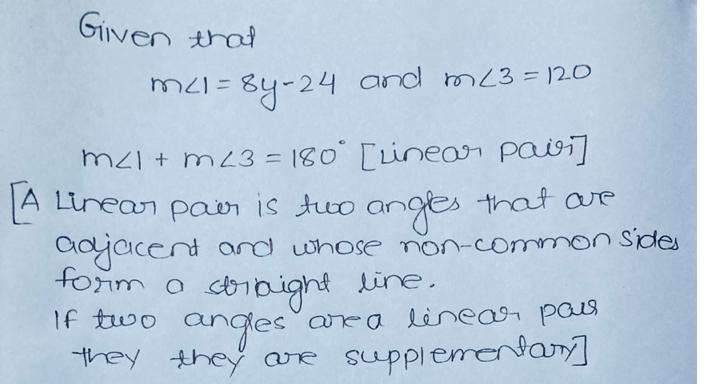 Given that
m∠1 = 8y-24 and m∠3 = 120
m∠1 + m∠3 = 180° [Linear pair]
[A Linear pair is two angles that are
adjacent and whose non-common sides
form a straight line.
If two angles are a linear pair
they they are supplementary]